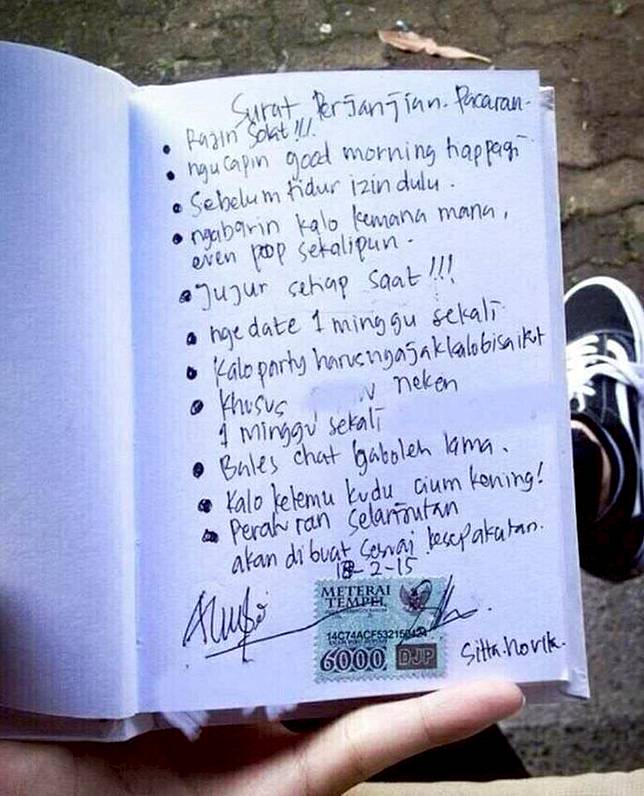 Surat Perjanjian Pacaran
• Rajin Solat!!!
• ngucapin good morning happagi
• Sebelum tidur izin dulu.
• ngabarin kalo kemana mana,
even poop sekalipun.
• Jujur setiap saat!!!
• ngedate 1 minggu sekali
• Kalo party harus ngajak kalo bisa ikut
• Khusus neken
1 minggu sekali
• Bales chat gaboleh lama.
• Kalo ketemu kudu cium kening!
• Peraturan selanjutan
akan dibuat sesuai kesepakatan.
18-2-15
METERAI
TEMPEL
14C74ACF532150424
6000 DJP
Sitta.Novita.